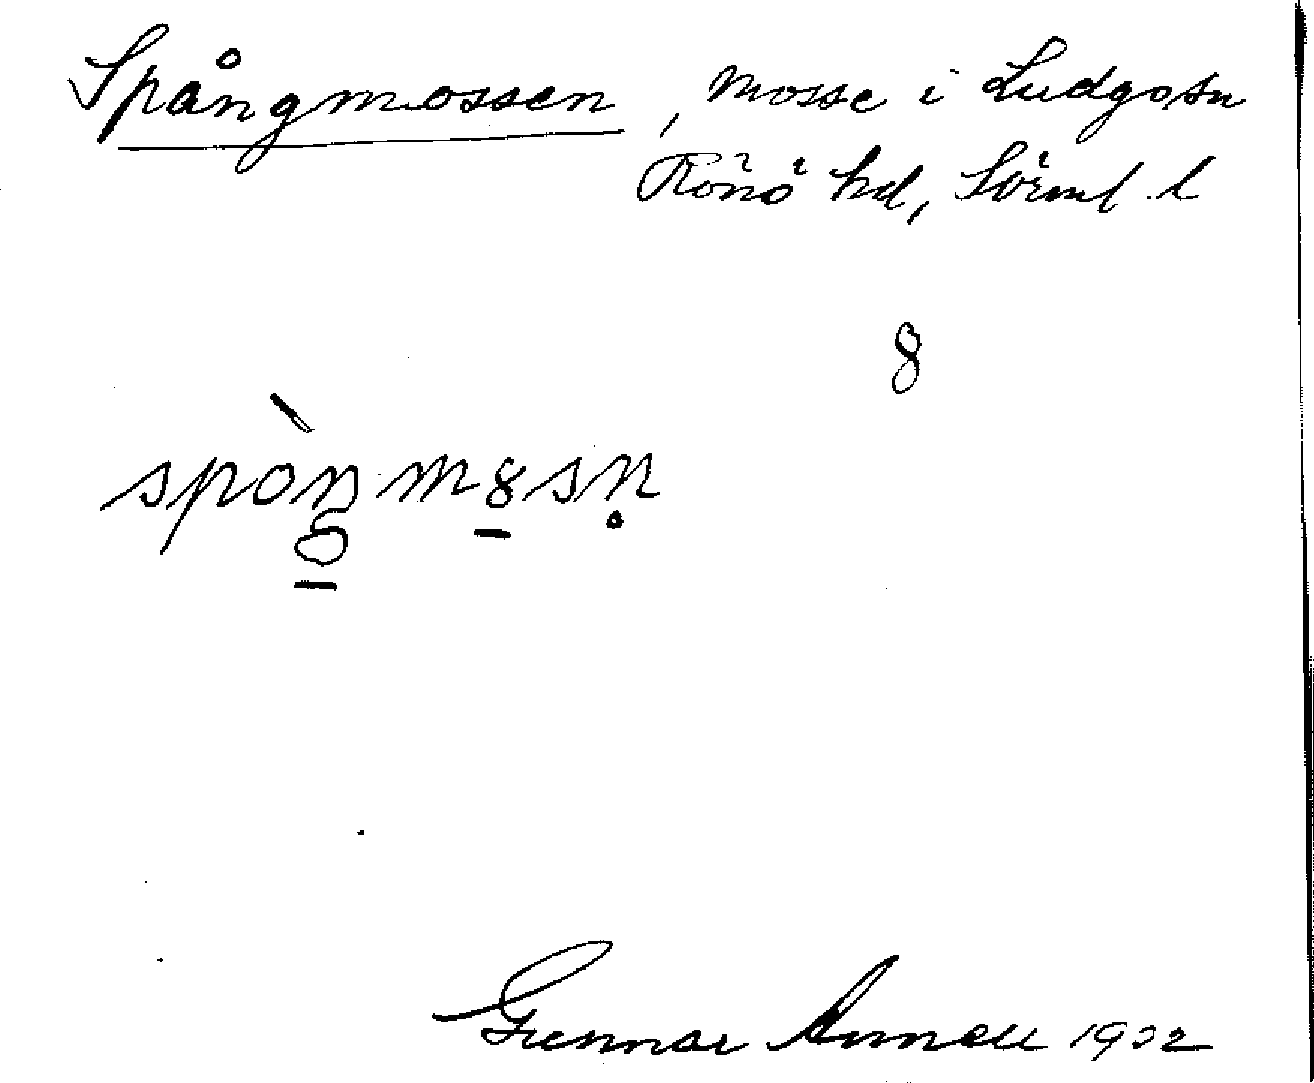 Spångmossen, mosse i Ludgo sn
Rönö hd, Sörml. l
8
Gunnar Annell 1932